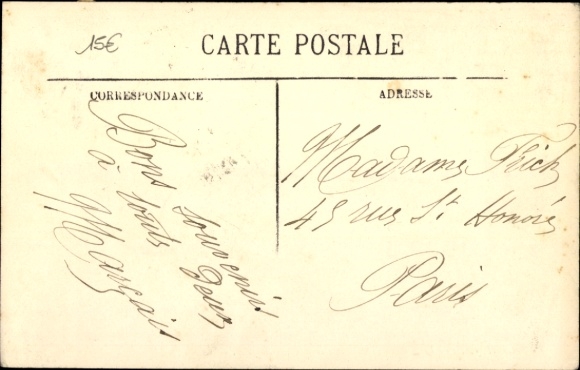 15€
CARTE POSTALE
CORRESPONDANCE
ADRESSE
Bons souvenirs
à touts deux
Madame
45 rue St Honoré
Paris